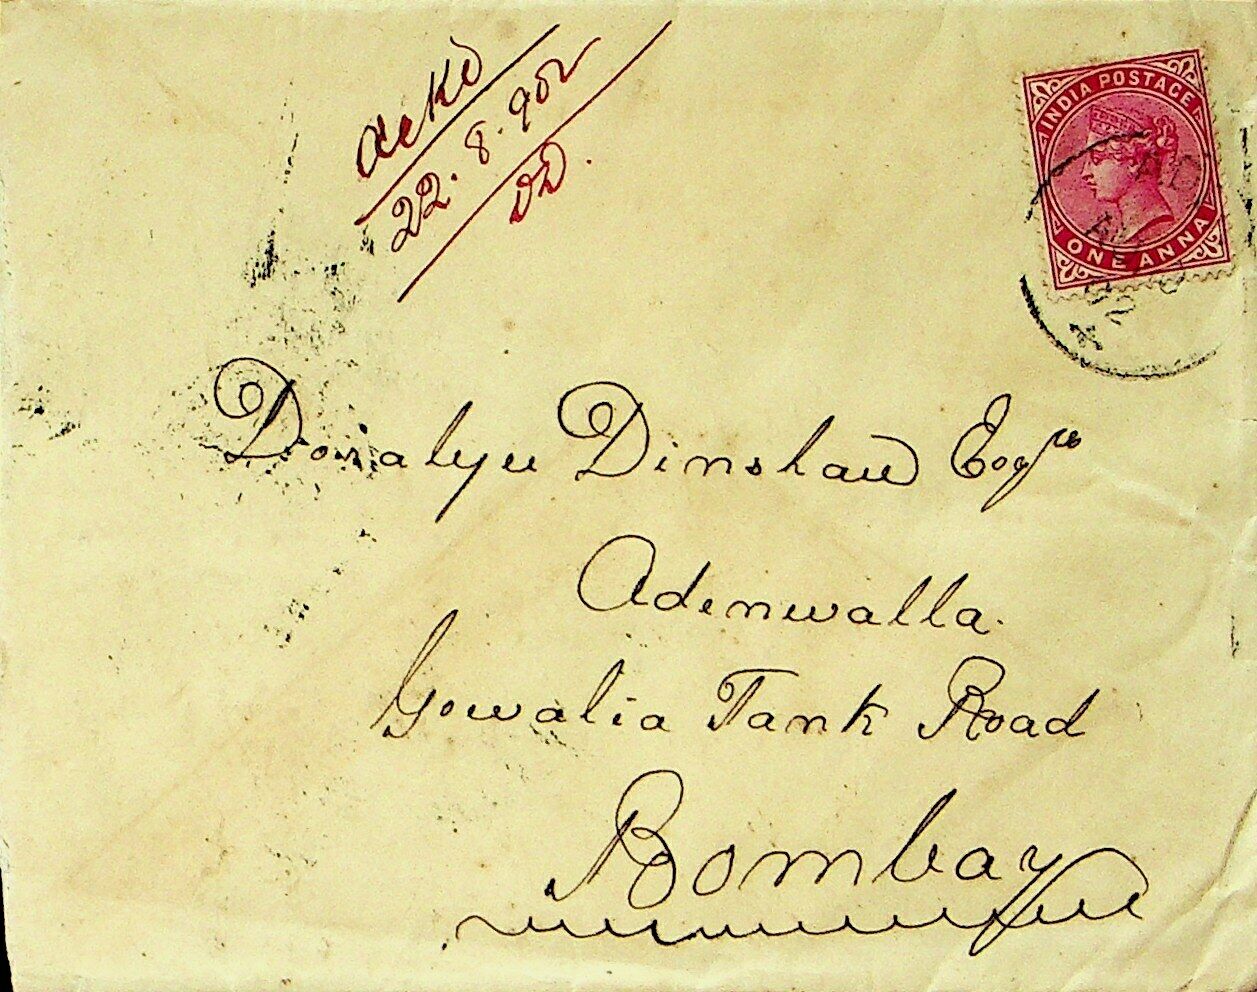 Ackd
22.8.902
DD.
INDIA POSTAGE
ONE ANNA
Dorabjee Dinshaw Esqre
Adenwalla.
Gowalia Tank Road
Bombay